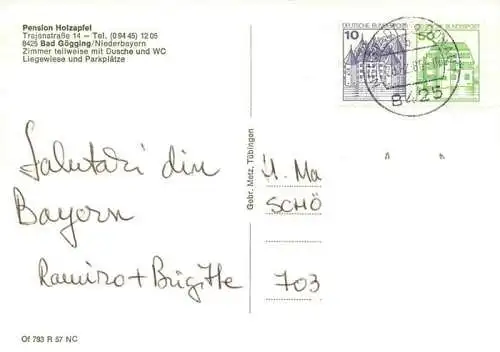 Pension Holzapfel
Trajanstraße 14 – Tel. (0 94 45) 12 05
8425 Bad Gögging/Niederbayern
Zimmer teilweise mit Dusche und WC
Liegewiese und Parkplätze
10
DEUTSCHE BUNDESPOST
50
BUNDESPOST
8425
Salutari din
Bayern
Ramiro + Brigitte
Gebr. Metz, Tübingen
H. Ma
SCHÖ
703
Of 793 R 57 NC